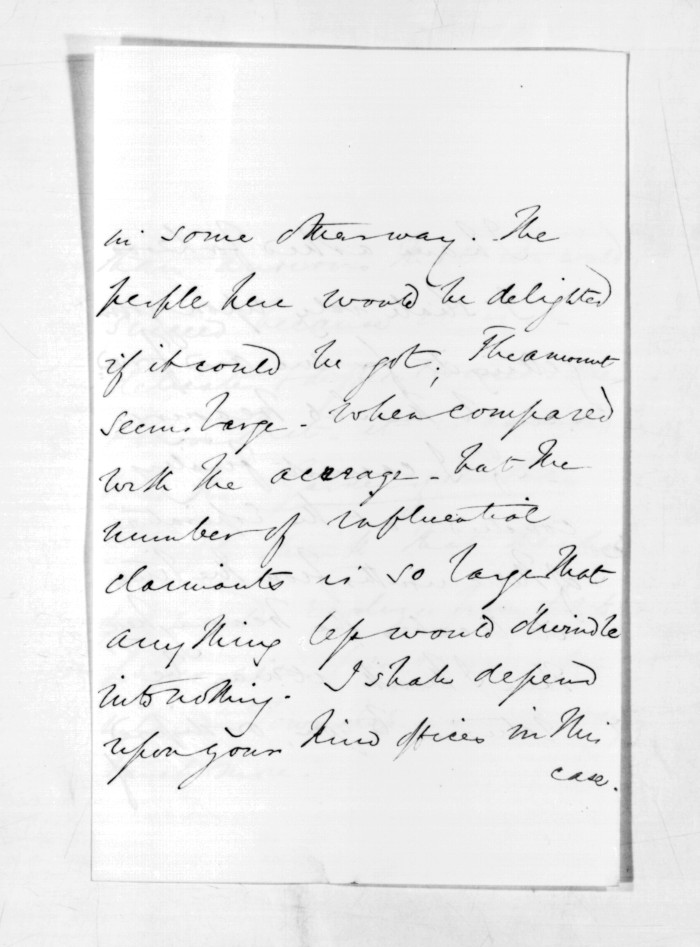 in some other way. The
people here would be delighted
if it could be got; The amount
seems large - when compared
with the acerage - but the
number of influential
claimants is so large that
anything less would dwindle
into nothing. I shall depend
upon your kind offices in this
case.